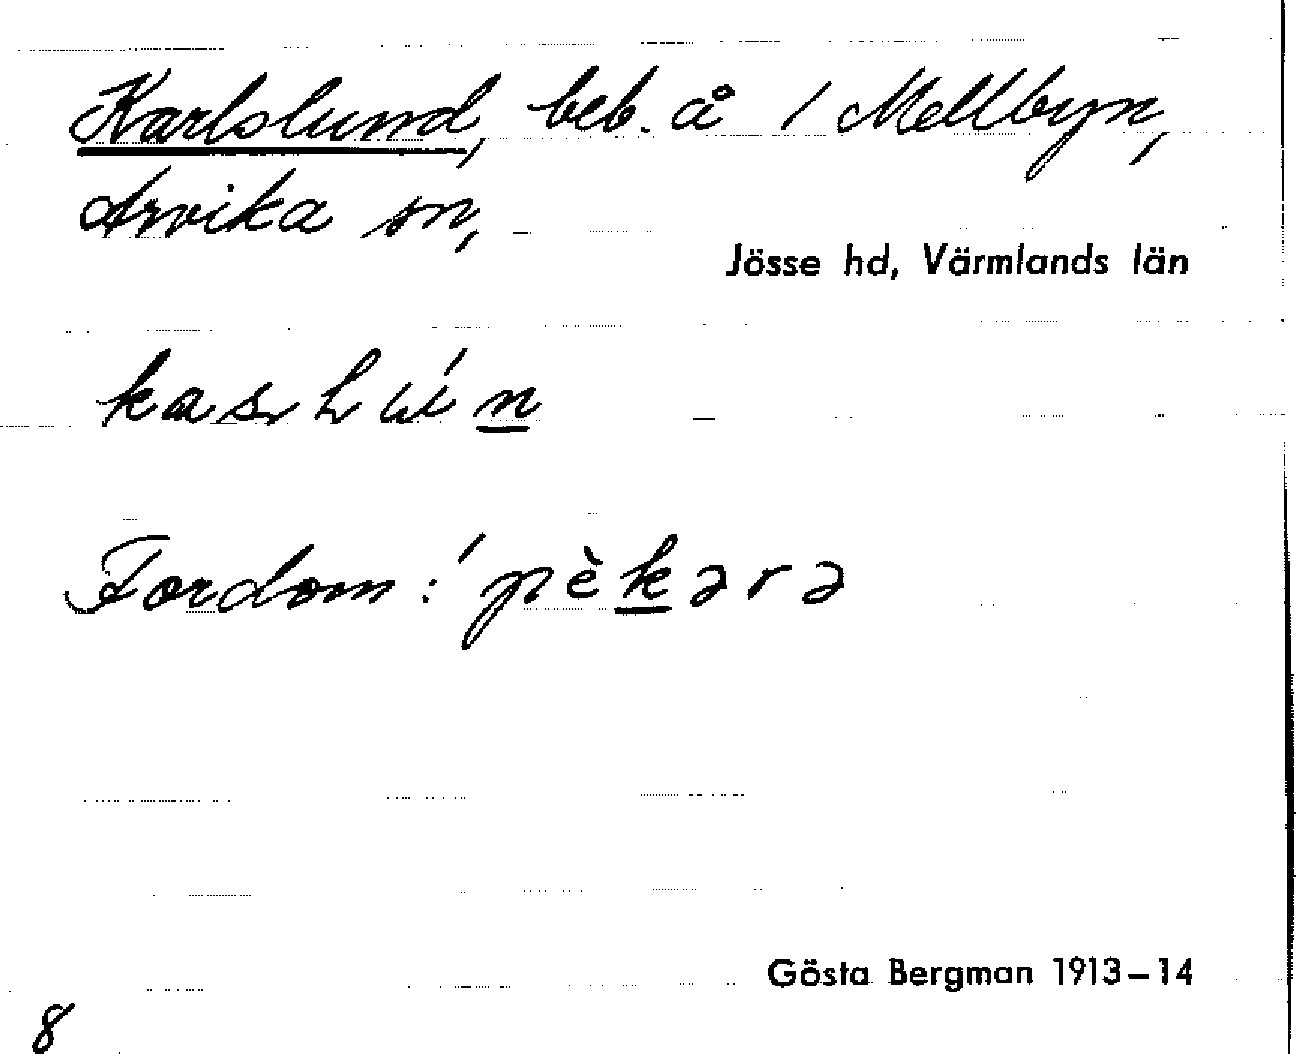 Karlslund, beb. å 1 Mellbyn,
Arvika sn,
Jösse hd, Värmlands län
Fordom: 'pèkərə
Gösta Bergman 1913–14
8